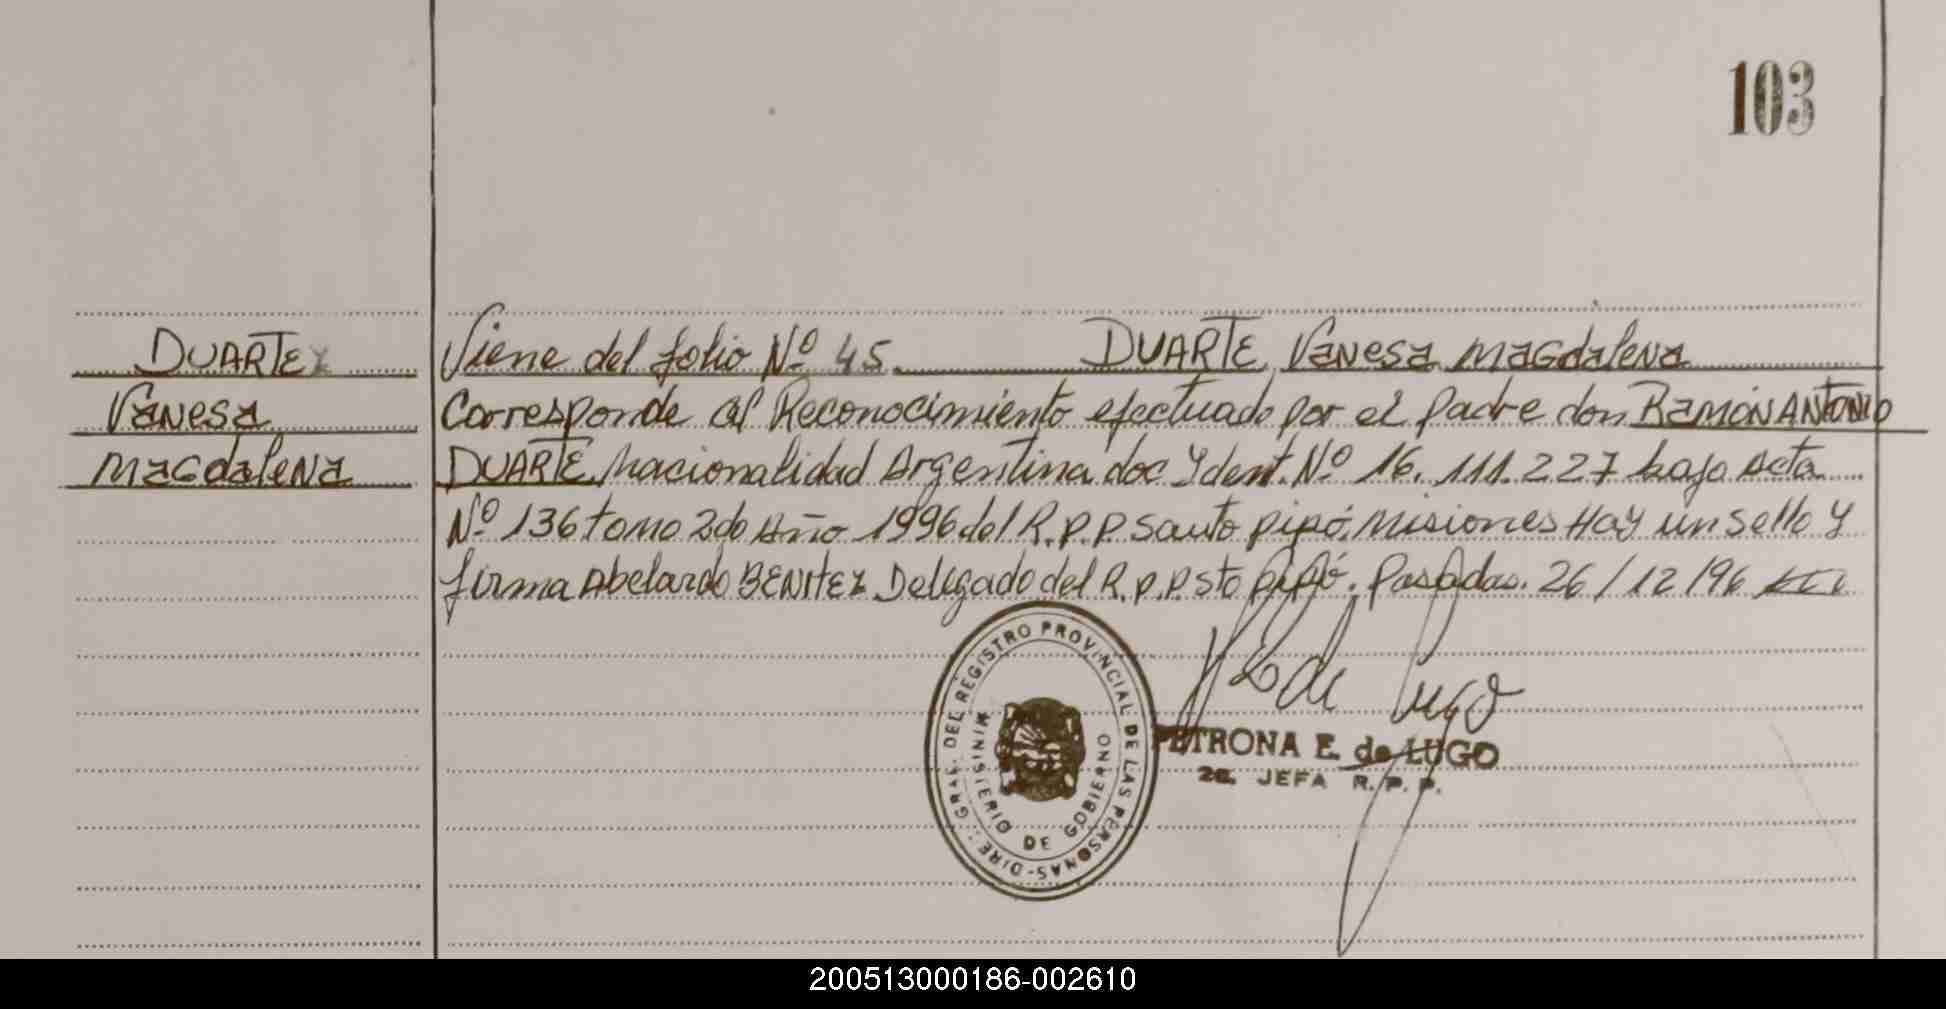 103
DUARTE Viene del folio Nº 45. DUARTE Vanesa Magdalena
Vanesa Corresponde al Reconocimiento efectuado por el padre don RAMÓN ANTONIO
Magdalena DUARTE, Nacionalidad Argentina doc Ydent. Nº 16.111.227 bajo Acta
Nº 136 tomo 2do Año 1996 del R.P.P Santo Pipó, Misiones Hay un sello y
firma Abelardo BENITEZ Delegado del R.P.P. Sto Pipó. Posadas. 26/12/96
DIRE. GRAL. DEL REGISTRO PROVINCIAL DE LAS PERSONAS
MINISTERIO DE GOBIERNO
P E de Lugo
PETRONA E. de LUGO
2a. JEFA R.P.P.
200513000186-002610